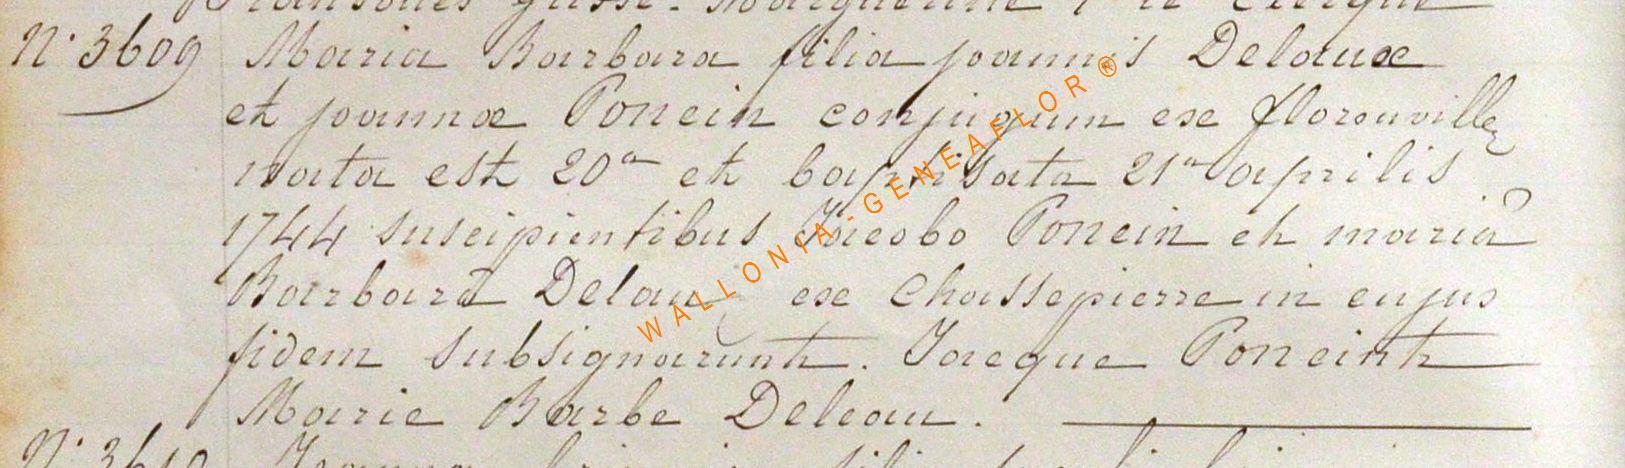 N° 3609 Maria Barbara filia joannis Delaux
et joannæ Poncin conjugum ex florenville
nata est 20a et baptisata 21a aprilis
1744 suscipientibus Jacobo Poncin et mariâ
Barbarâ Delau ex Chassepierre in cujus
fidem subsignarunt. Jacque Poncint
Marie Barbe Deleau.
N° 3610 Joanna
WALLONIA-GENEAFLOR®